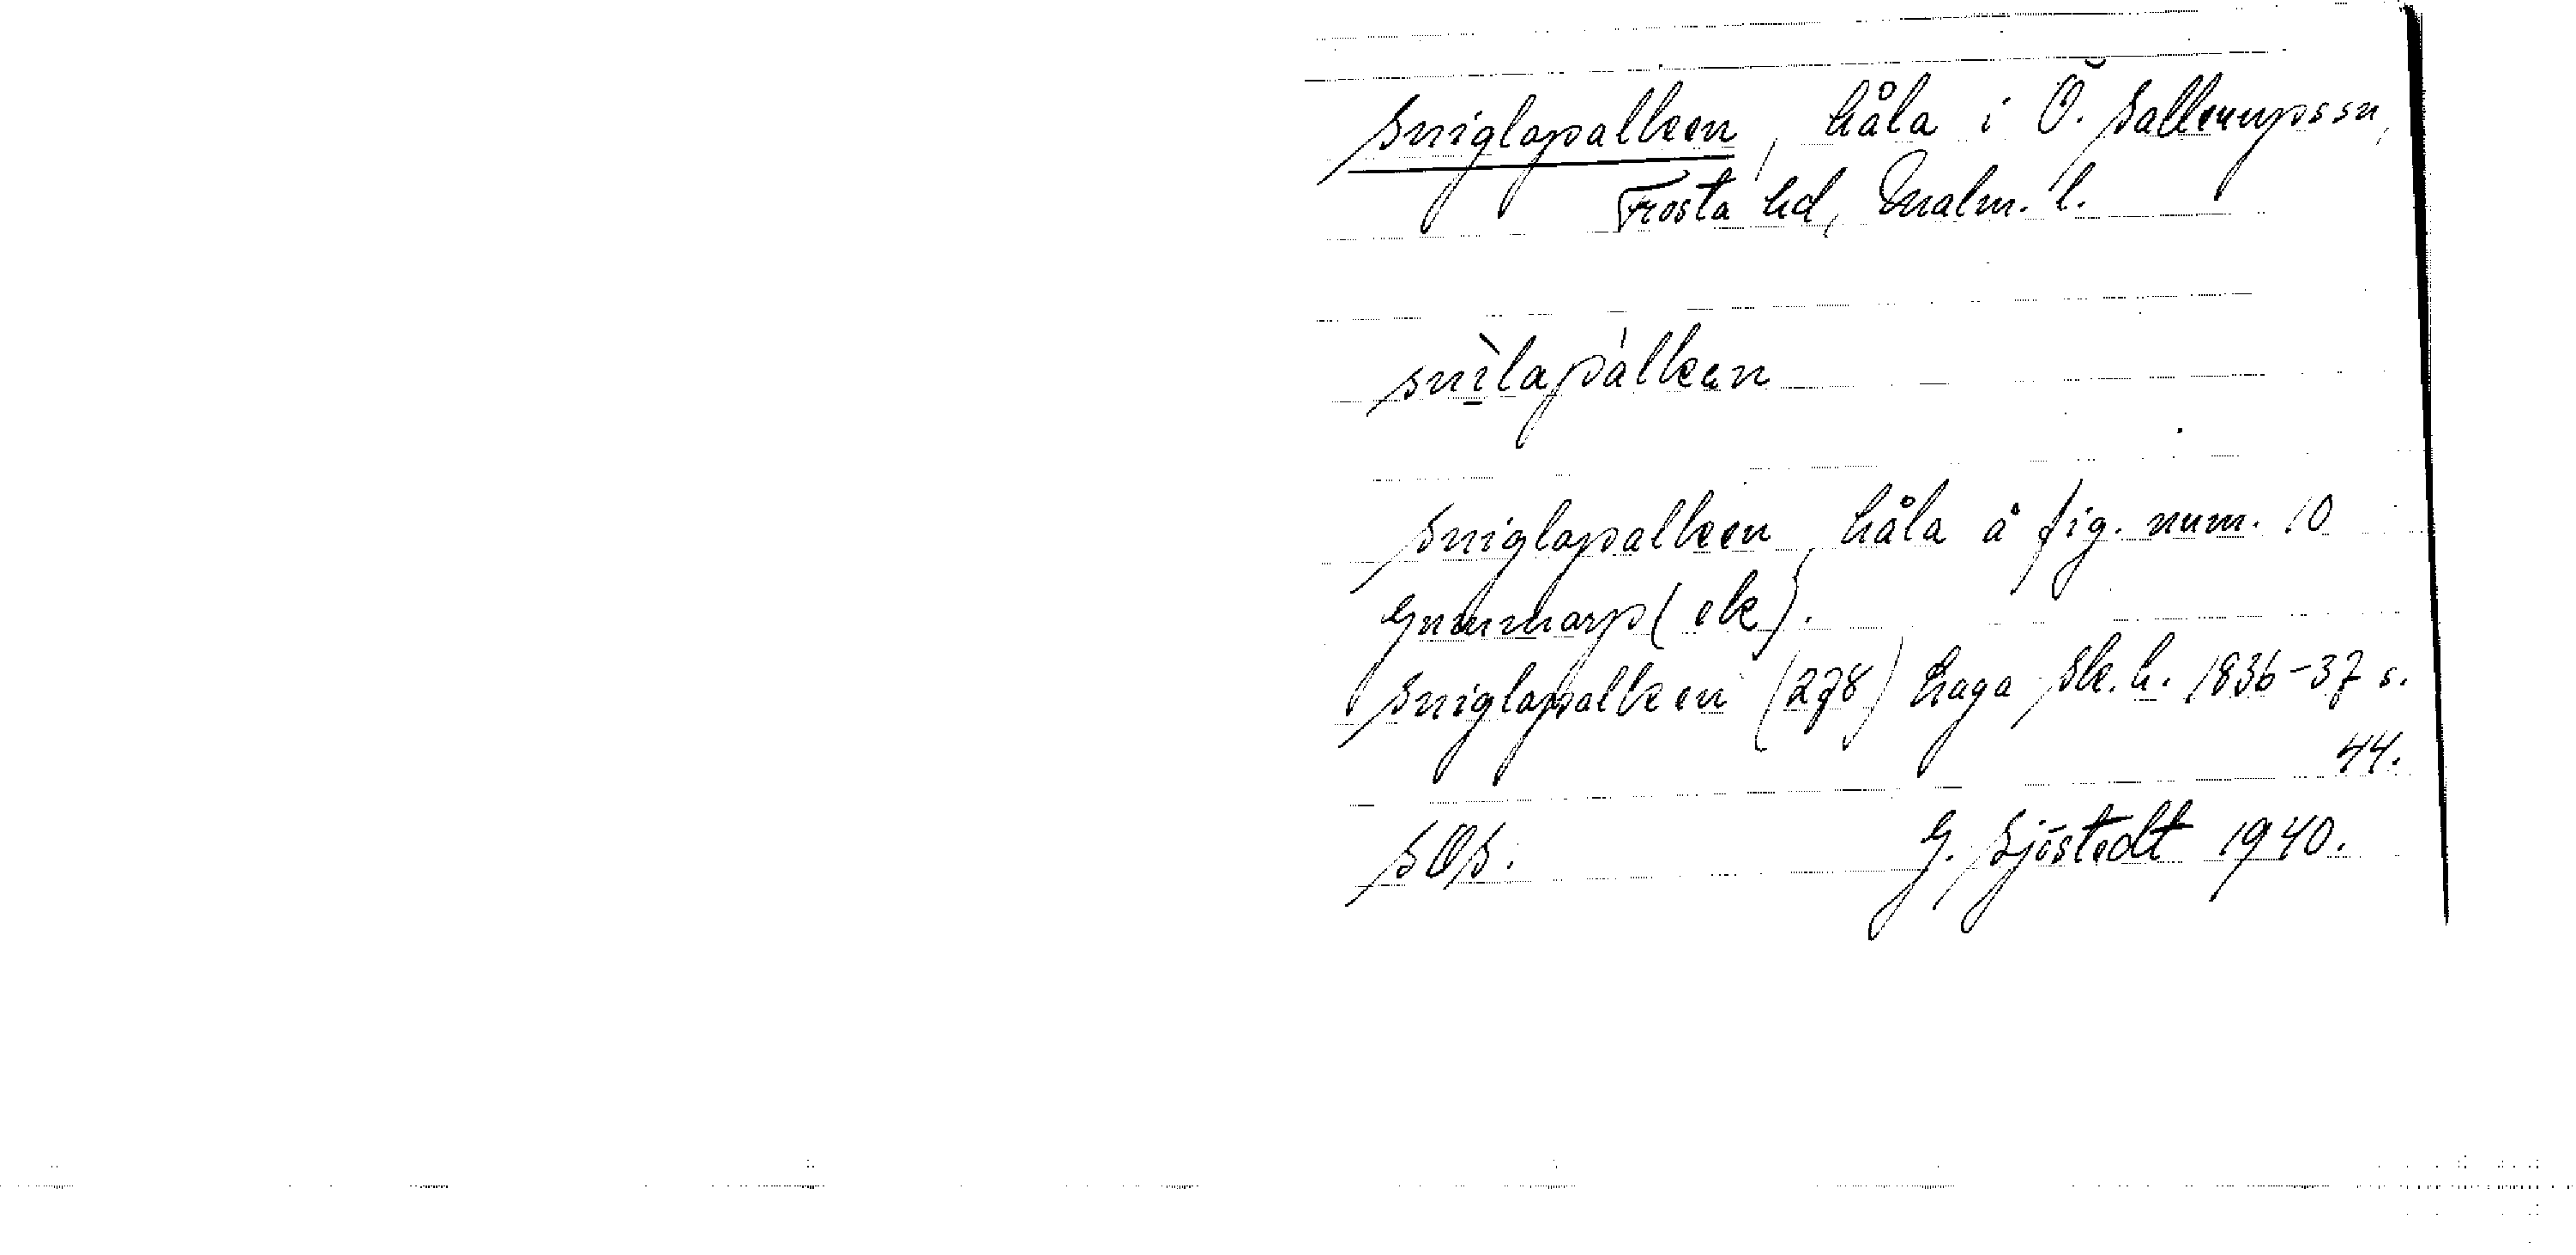 Sniglapalken, håla i Ö. Sallerupssn,
Frosta hd, Malm. l.
snìlapálkən
Sniglapalken, håla å fig. num. 10
Gunnarp (ek).
Sniglapalken (278) haga Sk. h. 1836-37 s.
44.
SOS. G. Sjöstedt 1940.